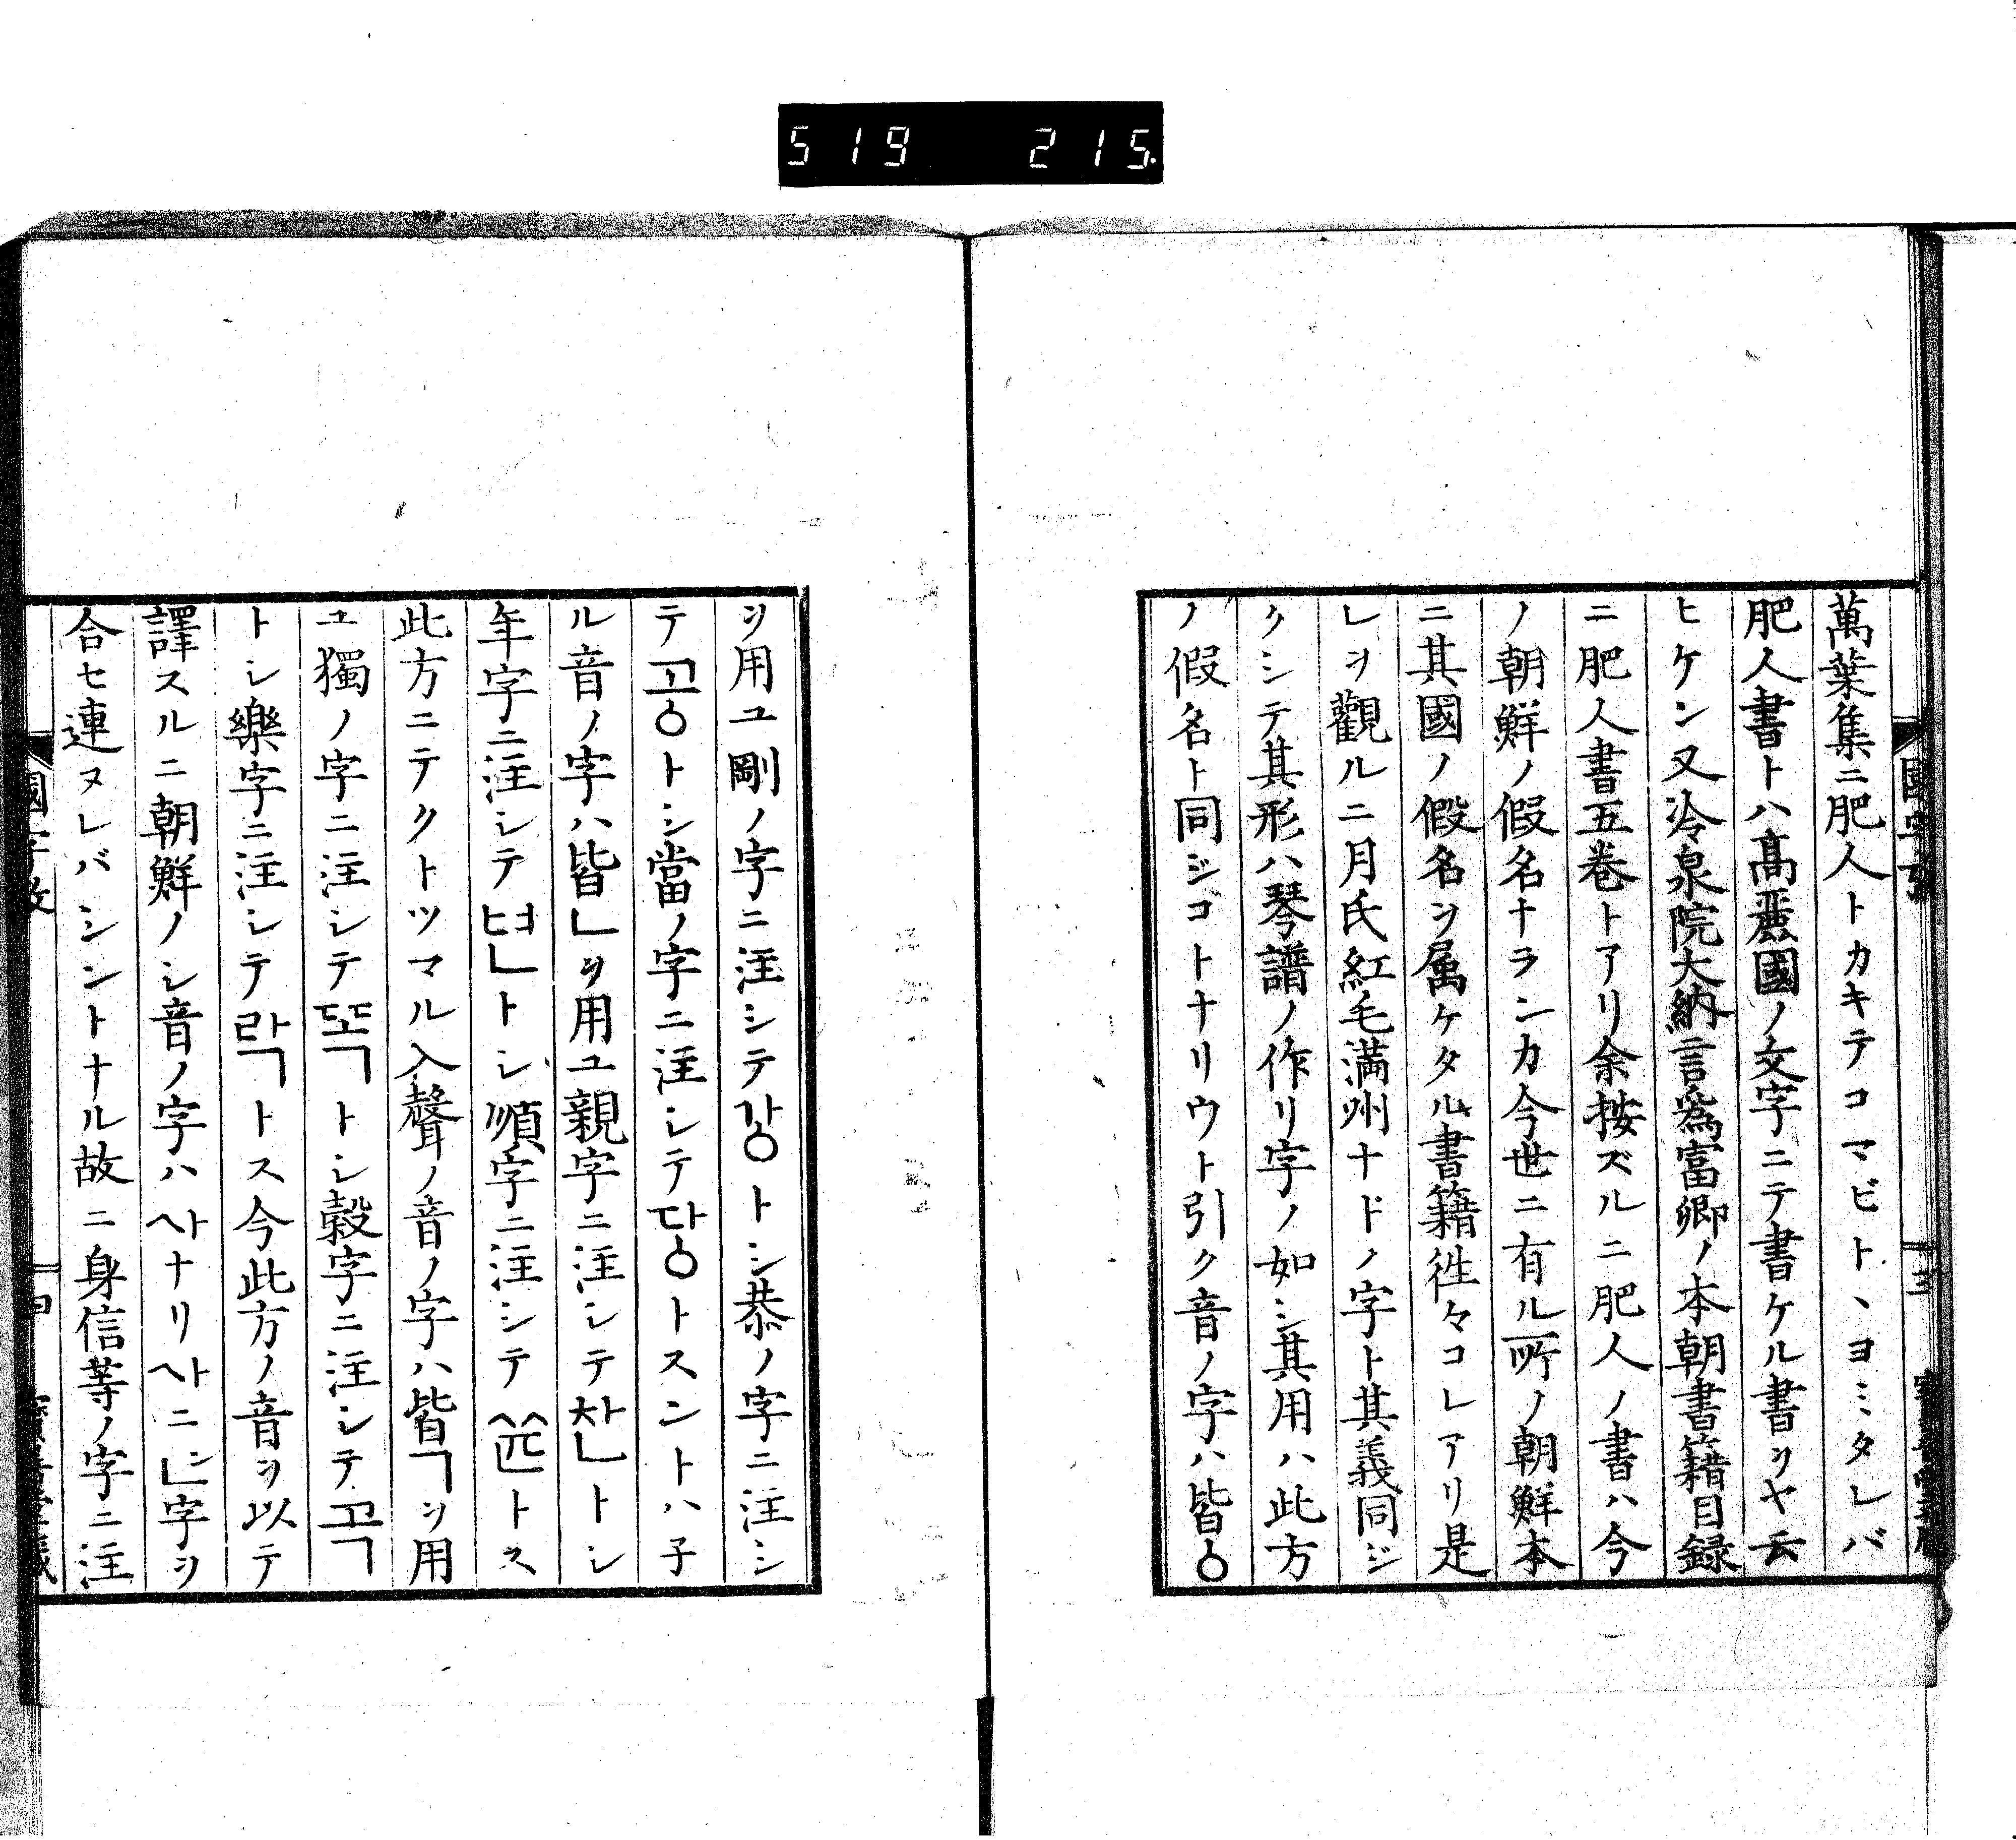 519 215
萬葉集ニ肥人トカキテコマビトヽヨミタレバ
肥人書トハ高麗國ノ文字ニテ書ケル書ヲヤ云
ヒケン又冷泉院大納言為富卿ノ本朝書籍目録
ニ肥人書五巻トアリ余按ズルニ肥人ノ書ハ今
ノ朝鮮ノ假名ナランカ今世ニ有ル所ノ朝鮮本
ニ其國ノ假名ヲ属ケタル書籍徃々コレアリ是
レヲ觀ルニ月氏紅毛満州ナドノ字ト其義同ジ
クシテ其形ハ琴譜ノ作リ字ノ如シ其用ハ此方
ノ假名ト同ジコトナリウト引ク音ノ字ハ皆ㆁ
ヲ用ユ剛ノ字ニ注シテ강トシ恭ノ字ニ注シ
テ공トシ當ノ字ニ注シテ당トスントハ子
ル音ノ字ハ皆ㄴヲ用ユ親字ニ注シテ찬トシ
年字ニ注シテ년トシ順字ニ注シテ쓘トス
此方ニテクトツマル入聲ノ音ノ字ハ皆ㄱヲ用
ユ獨ノ字ニ注シテ똑トシ穀字ニ注シテ곡
トシ樂字ニ注シテ락トス今此方ノ音ヲ以テ
譯スルニ朝鮮ノシ音ノ字ハ사ナリ사ニㄴ字ヲ
合セ連ヌレバシントナル故ニ身信等ノ字ニ注
國字攷